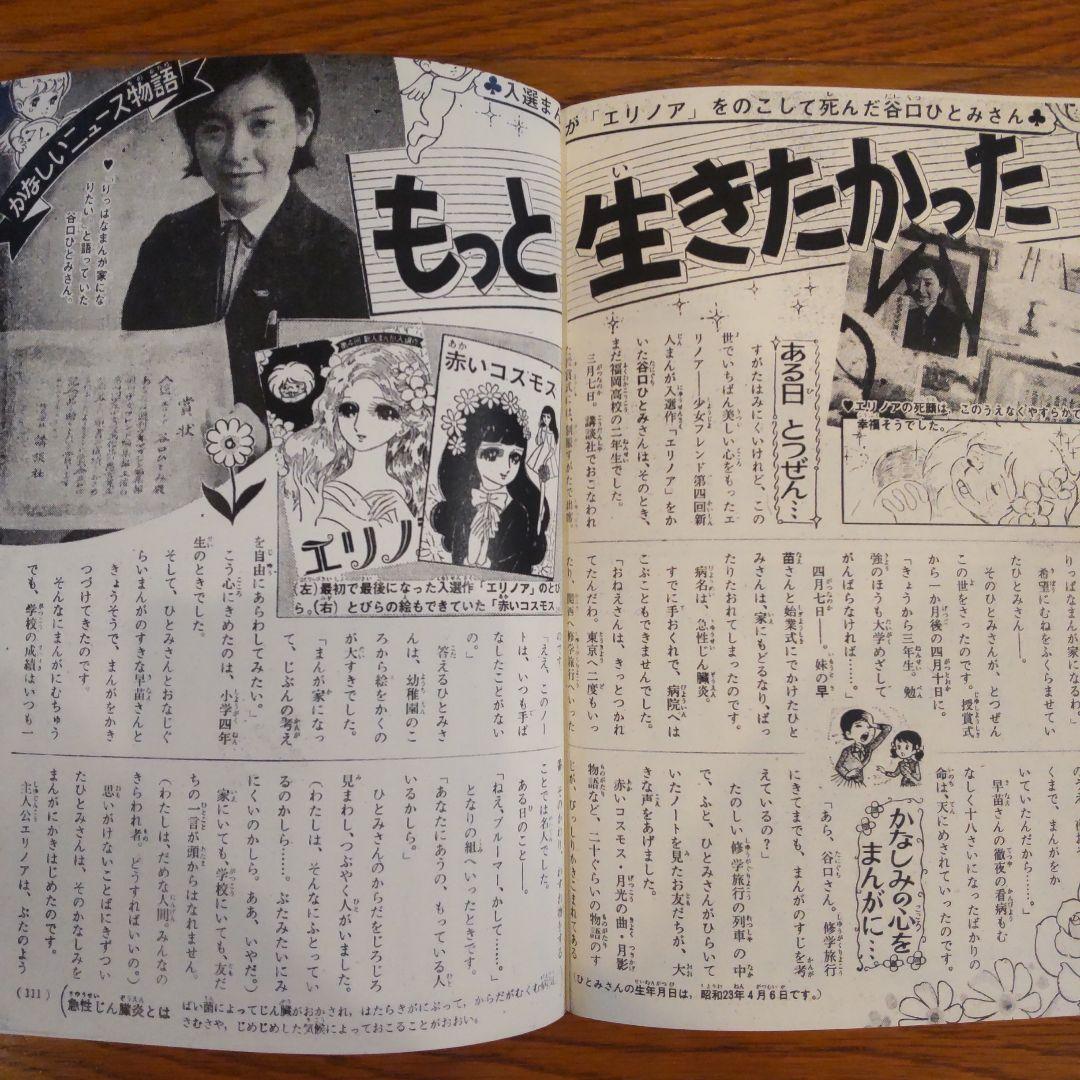 ♣入選まんが「エリノア」をのこして死んだ谷口ひとみさん♣
もっと生きたかった
かなしいニュース物語
♥「りっぱなまんが家にな
りたい」と語っていた
谷口ひとみさん。
賞状
講談社
赤いコスモス
エリノ
(左)最初で最後になった入選作「エリノア」のとび
ら。(右)とびらの絵もできていた「赤いコスモス
♥エリノアの死顔は、このうえなくやすらかで
幸福そうでした。
ある日 とつぜん…
すがたはみにくいけれど、この
世でいちばん美しい心をもったエ
リノア——少女フレンド第四回新
人まんが入選作「エリノア」をか
いた谷口ひとみさんは、そのとき、
まだ福岡高校の二年生でした。
三月七日。講談社でおこなわれ
希望にむねをふくらませてい
たひとみさん——。
そのひとみさんが、とつぜん
この世をさったのです。授賞式
から一か月後の四月十日に。
「きょうから三年生。勉
強のほうも大学めざして
がんばらなければ……。」
四月七日——。妹の早
苗さんと始業式にでかけたひと
みさんは、家にもどるなり、ばっ
たりたおれてしまったのです。
病名は、急性じん臓炎。
すでに手おくれで、病院へは
こぶこともできませんでした。
「おねえさんは、きっとつかれ
てたんだわ。東京へ二度もいっ
たり、関西へ修学旅行へいった
ていたんだから……。」
早苗さんの徹夜の看病もむ
なしく十八さいになったばかりの
命は、天にめされていったのです。
かなしみの心を
まんがに…
「あら、谷口さん。修学旅行
にきてまでも、まんがのすじを考
えているの?」
たのしい修学旅行の列車の中
で、ふと、ひとみさんがひらいて
いたノートを見たお友だちが、大
きな声をあげました。
赤いコスモス・月光の曲・月影
物語など、二十ぐらいの物語のす
じが、びっしりかきこまれてある
のです。
「ええ、このノー
トは、いつも手ば
なしたことがない
の。」
答えるひとみさ
んは、幼稚園のこ
ろから絵をかくの
が大すきでした。
「まんが家になっ
て、じぶんの考え
を自由にあらわしてみたい。」
こう心にきめたのは、小学四年
生のときでした。
そして、ひとみさんとおなじぐ
らいまんがのすきな早苗さんと
きょうそうで、まんがをかき
つづけてきたのです。
そんなにまんがにむちゅう
でも、学校の成績はいつも一
ことでは名人でした。
ある日のこと——。
「ねえ、ブルーマー、かして……。」
となりの組へいったときです。
「あなたにあうの、もっている人
いるかしら。」
ひとみさんのからだをじろじろ
見まわし、つぶやく人がいました。
(わたしは、そんなにふとってい
るのかしら……。ぶたみたいにみ
にくいのかしら。ああ、いやだ。)
家にいても、学校にいても、友だ
ちの一言が頭からはなれません。
(わたしは、だめな人間。みんなの
きらわれ者。どうすればいいの。)
思いがけないことばにきずつい
たひとみさんは、そのかなしみを
まんがにかきはじめたのです。
主人公エリノアは、ぶたのよう
(ひとみさんの生年月日は、昭和23年4月6日です。)
(111)
(急性じん臓炎とは
ばい菌によってじん臓がおかされ、はたらきがにぶって、からだがむくむ病気
さむさや、じめじめした気候によっておこることがおおい。